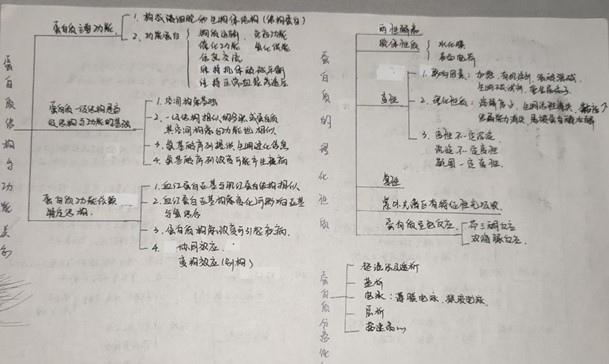 蛋白质结构与功能关系
蛋白质主要功能
1. 构成细胞和生物体结构(结构蛋白)
2. 功能蛋白
物质运输
免疫功能
催化功能
氧化供能
信息交流
维持机体酸碱平衡
维持正常血浆渗透压
蛋白质一级结构是高级结构与功能的基础
1. 空间构象基础
2. 一级结构相似的多肽或蛋白质
其空间构象与功能也相似
3. 氨基酸序列提供生物进化信息
4. 氨基酸序列改变可能产生疾病
蛋白质功能依赖特定结构
1. 血红蛋白亚基与肌红蛋白结构相似
2. 血红蛋白亚基构象变化可影响亚基
与氧结合
3. 蛋白质构象改变可引起疾病
4. 协同效应
变构效应(别构)
蛋白质的理化性质
两性解离
胶体性质
水化膜
表面电荷
变性
1. 影响因素:加热,有机溶剂,强酸强碱,
2. 理化性质:溶解度↓,生物活性丧失,黏度↑
结晶能力消失,易被蛋白酶水解
3. 变性不一定沉淀
沉淀不一定变性
凝固一定变性
复性
紫外光谱区有特征性光吸收
蛋白质呈色反应
茚三酮反应
双缩脲反应
蛋白质分离化
透析
盐析
电泳:薄膜电泳,凝胶电泳
层析
超速离心